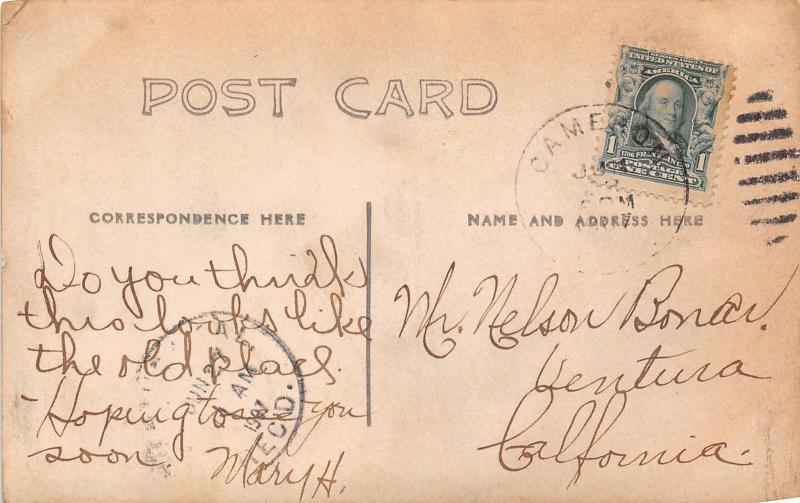 POST CARD
SERIES 1902
UNITED STATES OF
AMERICA
1706 FRANKLIN 1790
POSTAGE
1 ONE CENT 1
CAMERON
PM
CORRESPONDENCE HERE
NAME AND ADDRESS HERE
Do you think
this looks like
the old place.
Hoping to see you
soon. Mary H.
JUN 2
AM
1907
REC'D.
Mr. Nelson Bonar.
Ventura
California.